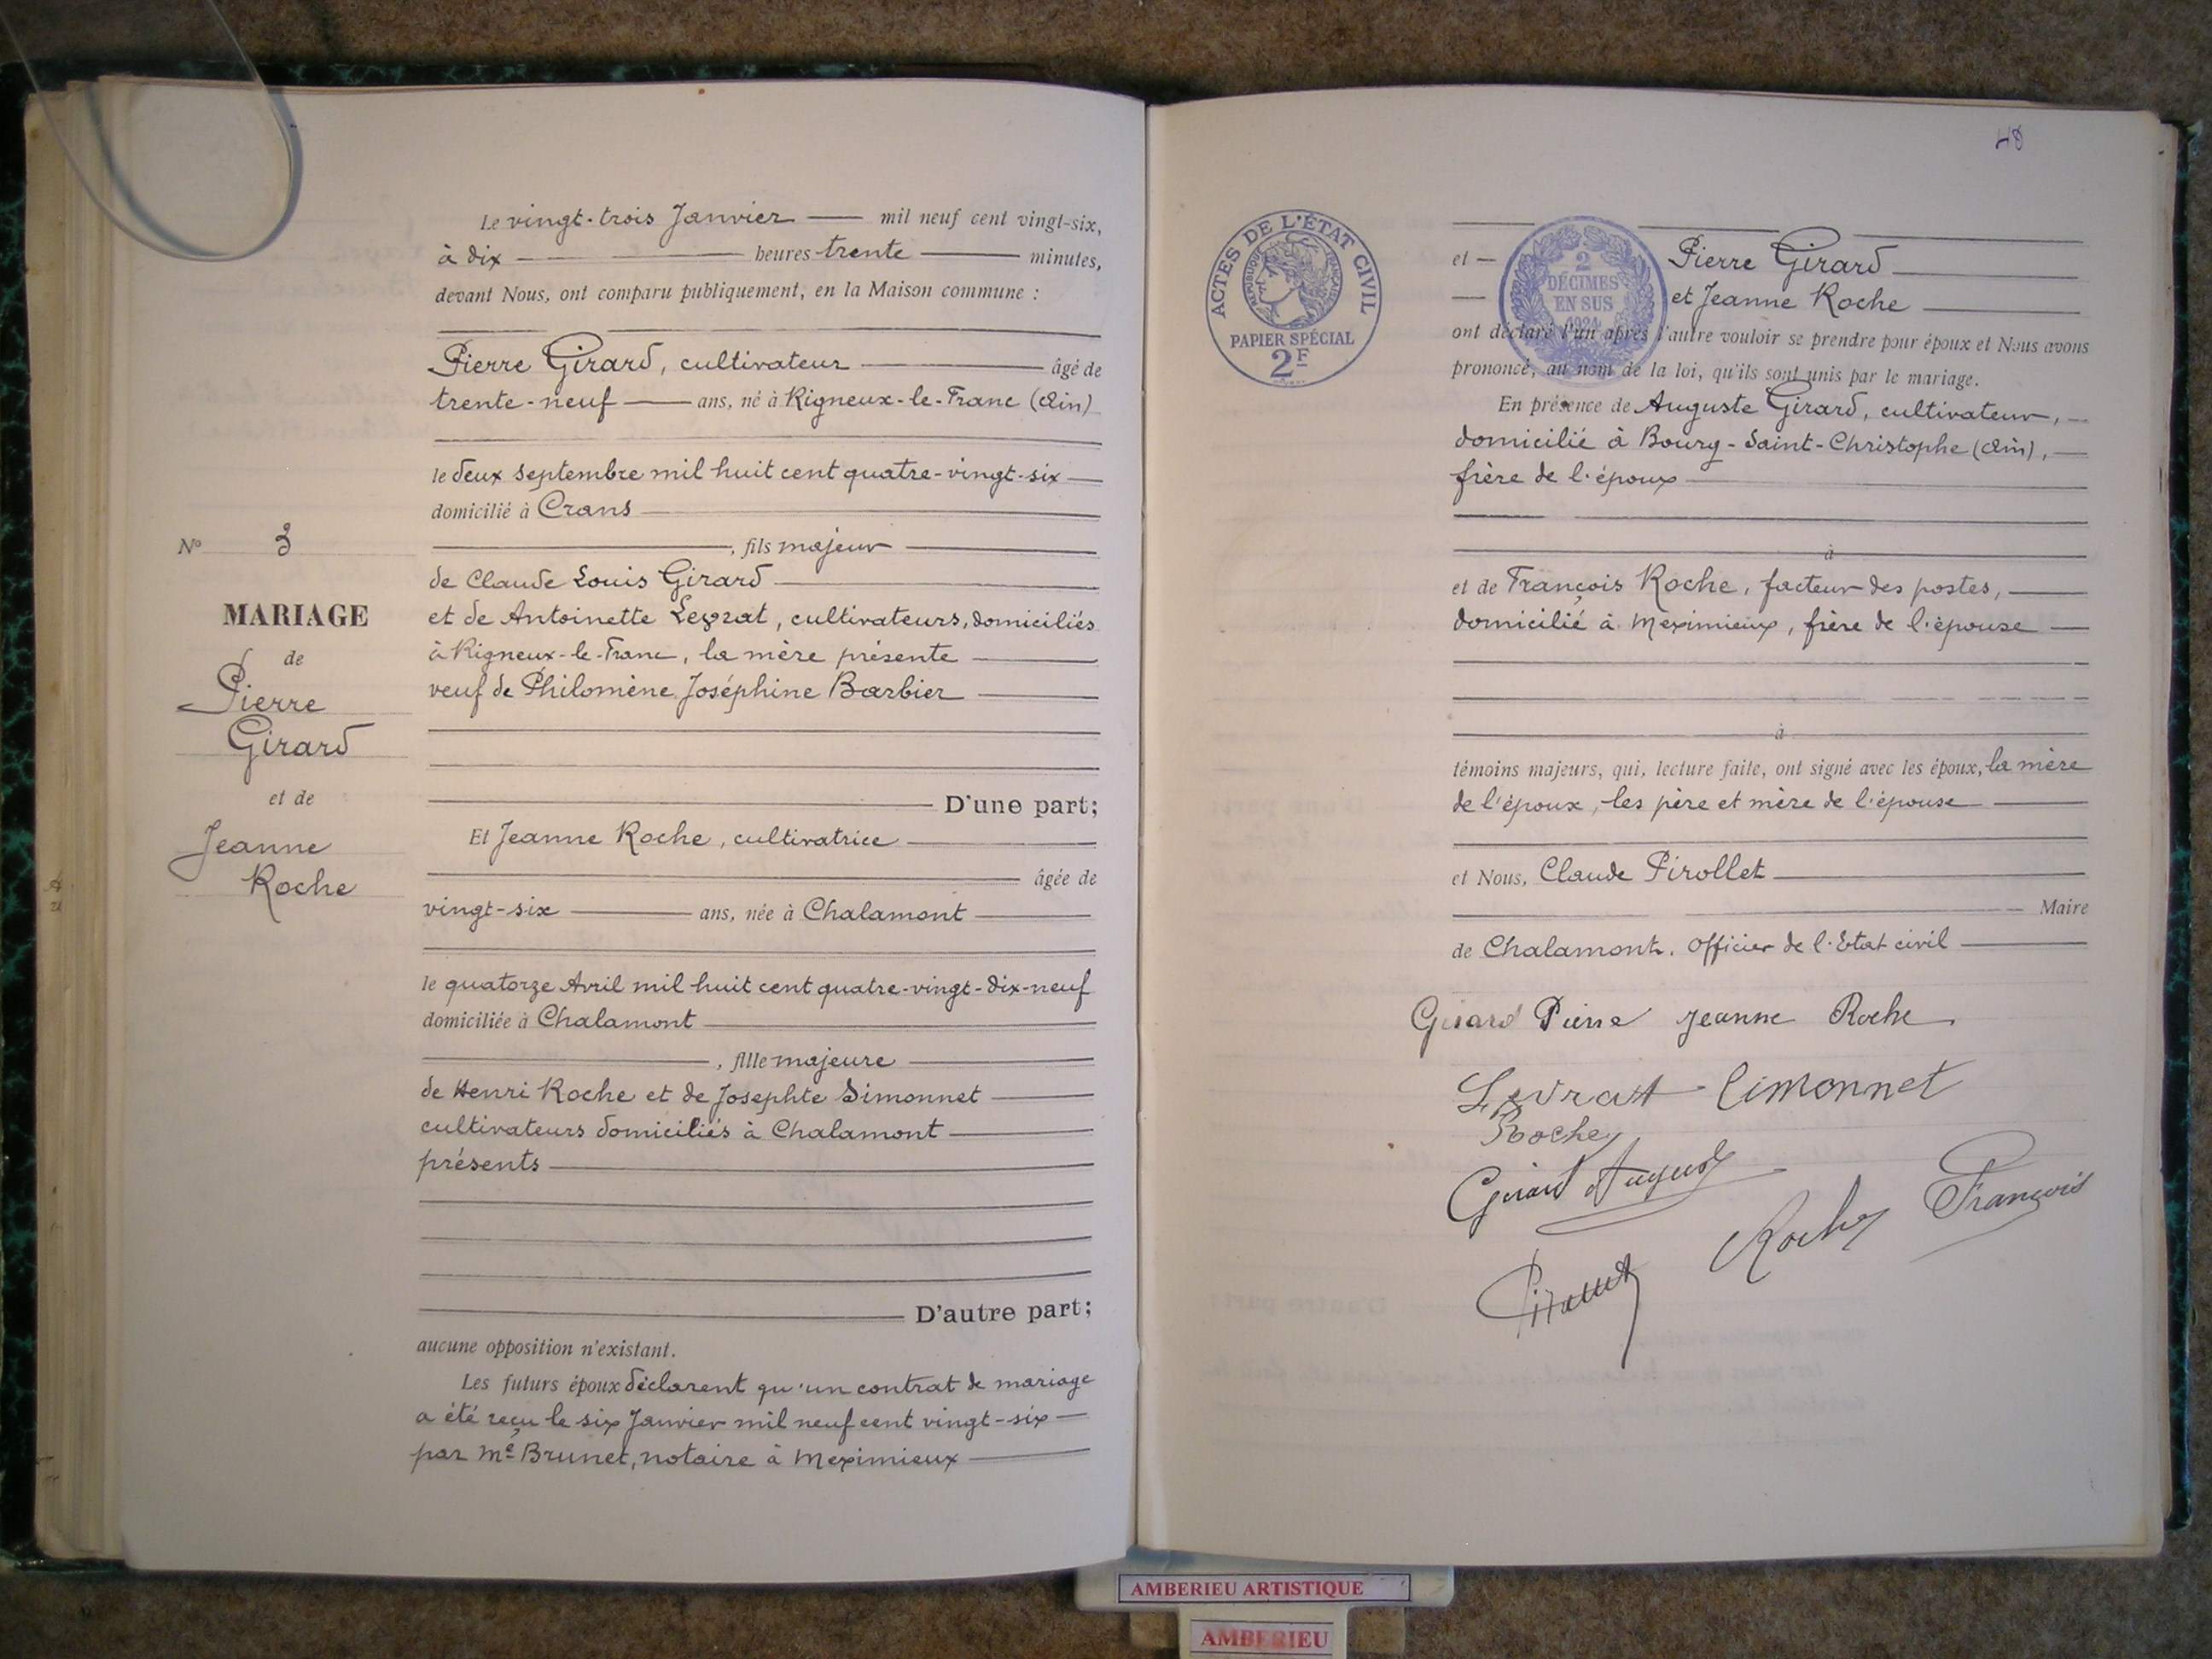 Le vingt-trois Janvier mil neuf cent vingt-six,
à dix heures trente minutes,
devant Nous, ont comparu publiquement, en la Maison commune :
Pierre Girard, cultivateur âgé de
trente-neuf ans, né à Rigneux-le-Franc (Ain)
le deux septembre mil huit cent quatre-vingt-six
domicilié à Crans
, fils majeur
de Claude Louis Girard
et de Antoinette Levrat, cultivateurs, domiciliés
à Rigneux-le-Franc, la mère présente
veuf de Philomène Joséphine Barbier
D'une part;
Et Jeanne Roche, cultivatrice
âgée de
vingt-six ans, née à Chalamont
le quatorze Avril mil huit cent quatre-vingt-dix-neuf
domiciliée à Chalamont
, fille majeure
de Henri Roche et de Josephte Simonnet
cultivateurs domiciliés à Chalamont
présents
D'autre part;
aucune opposition n'existant.
Les futurs époux déclarent qu'un contrat de mariage
a été reçu le six Janvier mil neuf cent vingt-six
par Me Brunet, notaire à Meximieux
No 3
MARIAGE
de
Pierre
Girard
et de
Jeanne
Roche
48
ACTES DE L'ÉTAT CIVIL
RÉPUBLIQUE FRANÇAISE
PAPIER SPÉCIAL
2F
2
DÉCIMES
EN SUS
1924
et Pierre Girard
et Jeanne Roche
ont déclaré l'un après l'autre vouloir se prendre pour époux et Nous avons
prononcé, au nom de la loi, qu'ils sont unis par le mariage.
En présence de Auguste Girard, cultivateur,
domicilié à Bourg-Saint-Christophe (Ain),
frère de l'époux
à
et de François Roche, facteur des postes,
domicilié à Meximieux, frère de l'épouse
à
témoins majeurs, qui, lecture faite, ont signé avec les époux, la mère
de l'époux, les père et mère de l'épouse
et Nous, Claude Pirollet
Maire
de Chalamont, Officier de l'Etat civil
Girard Pierre Jeanne Roche
Levrat Simonnet
Roche
Girard Auguste
Roche François
Pirollet
AMBERIEU ARTISTIQUE
AMBERIEU